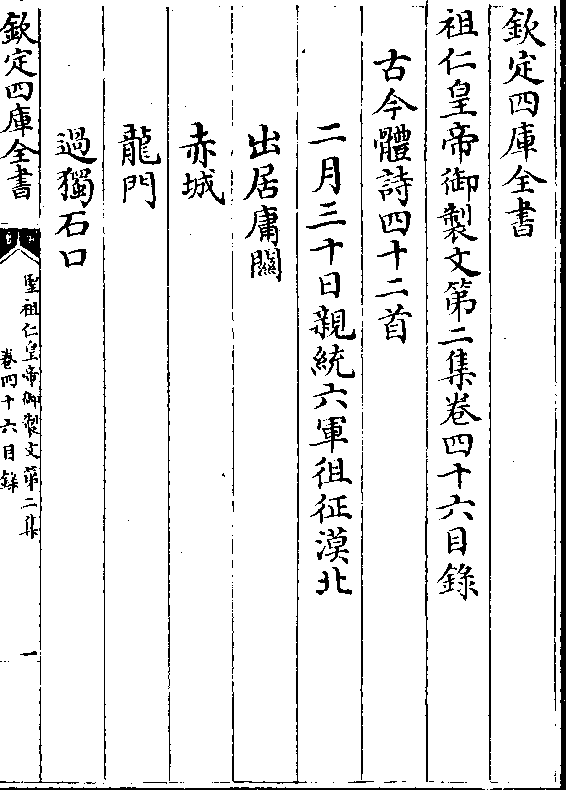 欽定四庫全書
祖仁皇帝御製文第二集卷四十六目錄
古今體詩四十二首
二月三十日親統六軍徂征漠北
出居庸關
赤城
龍門
過獨石口
欽定四庫全書
聖祖仁皇帝御製文第二集
卷四十六目錄
一